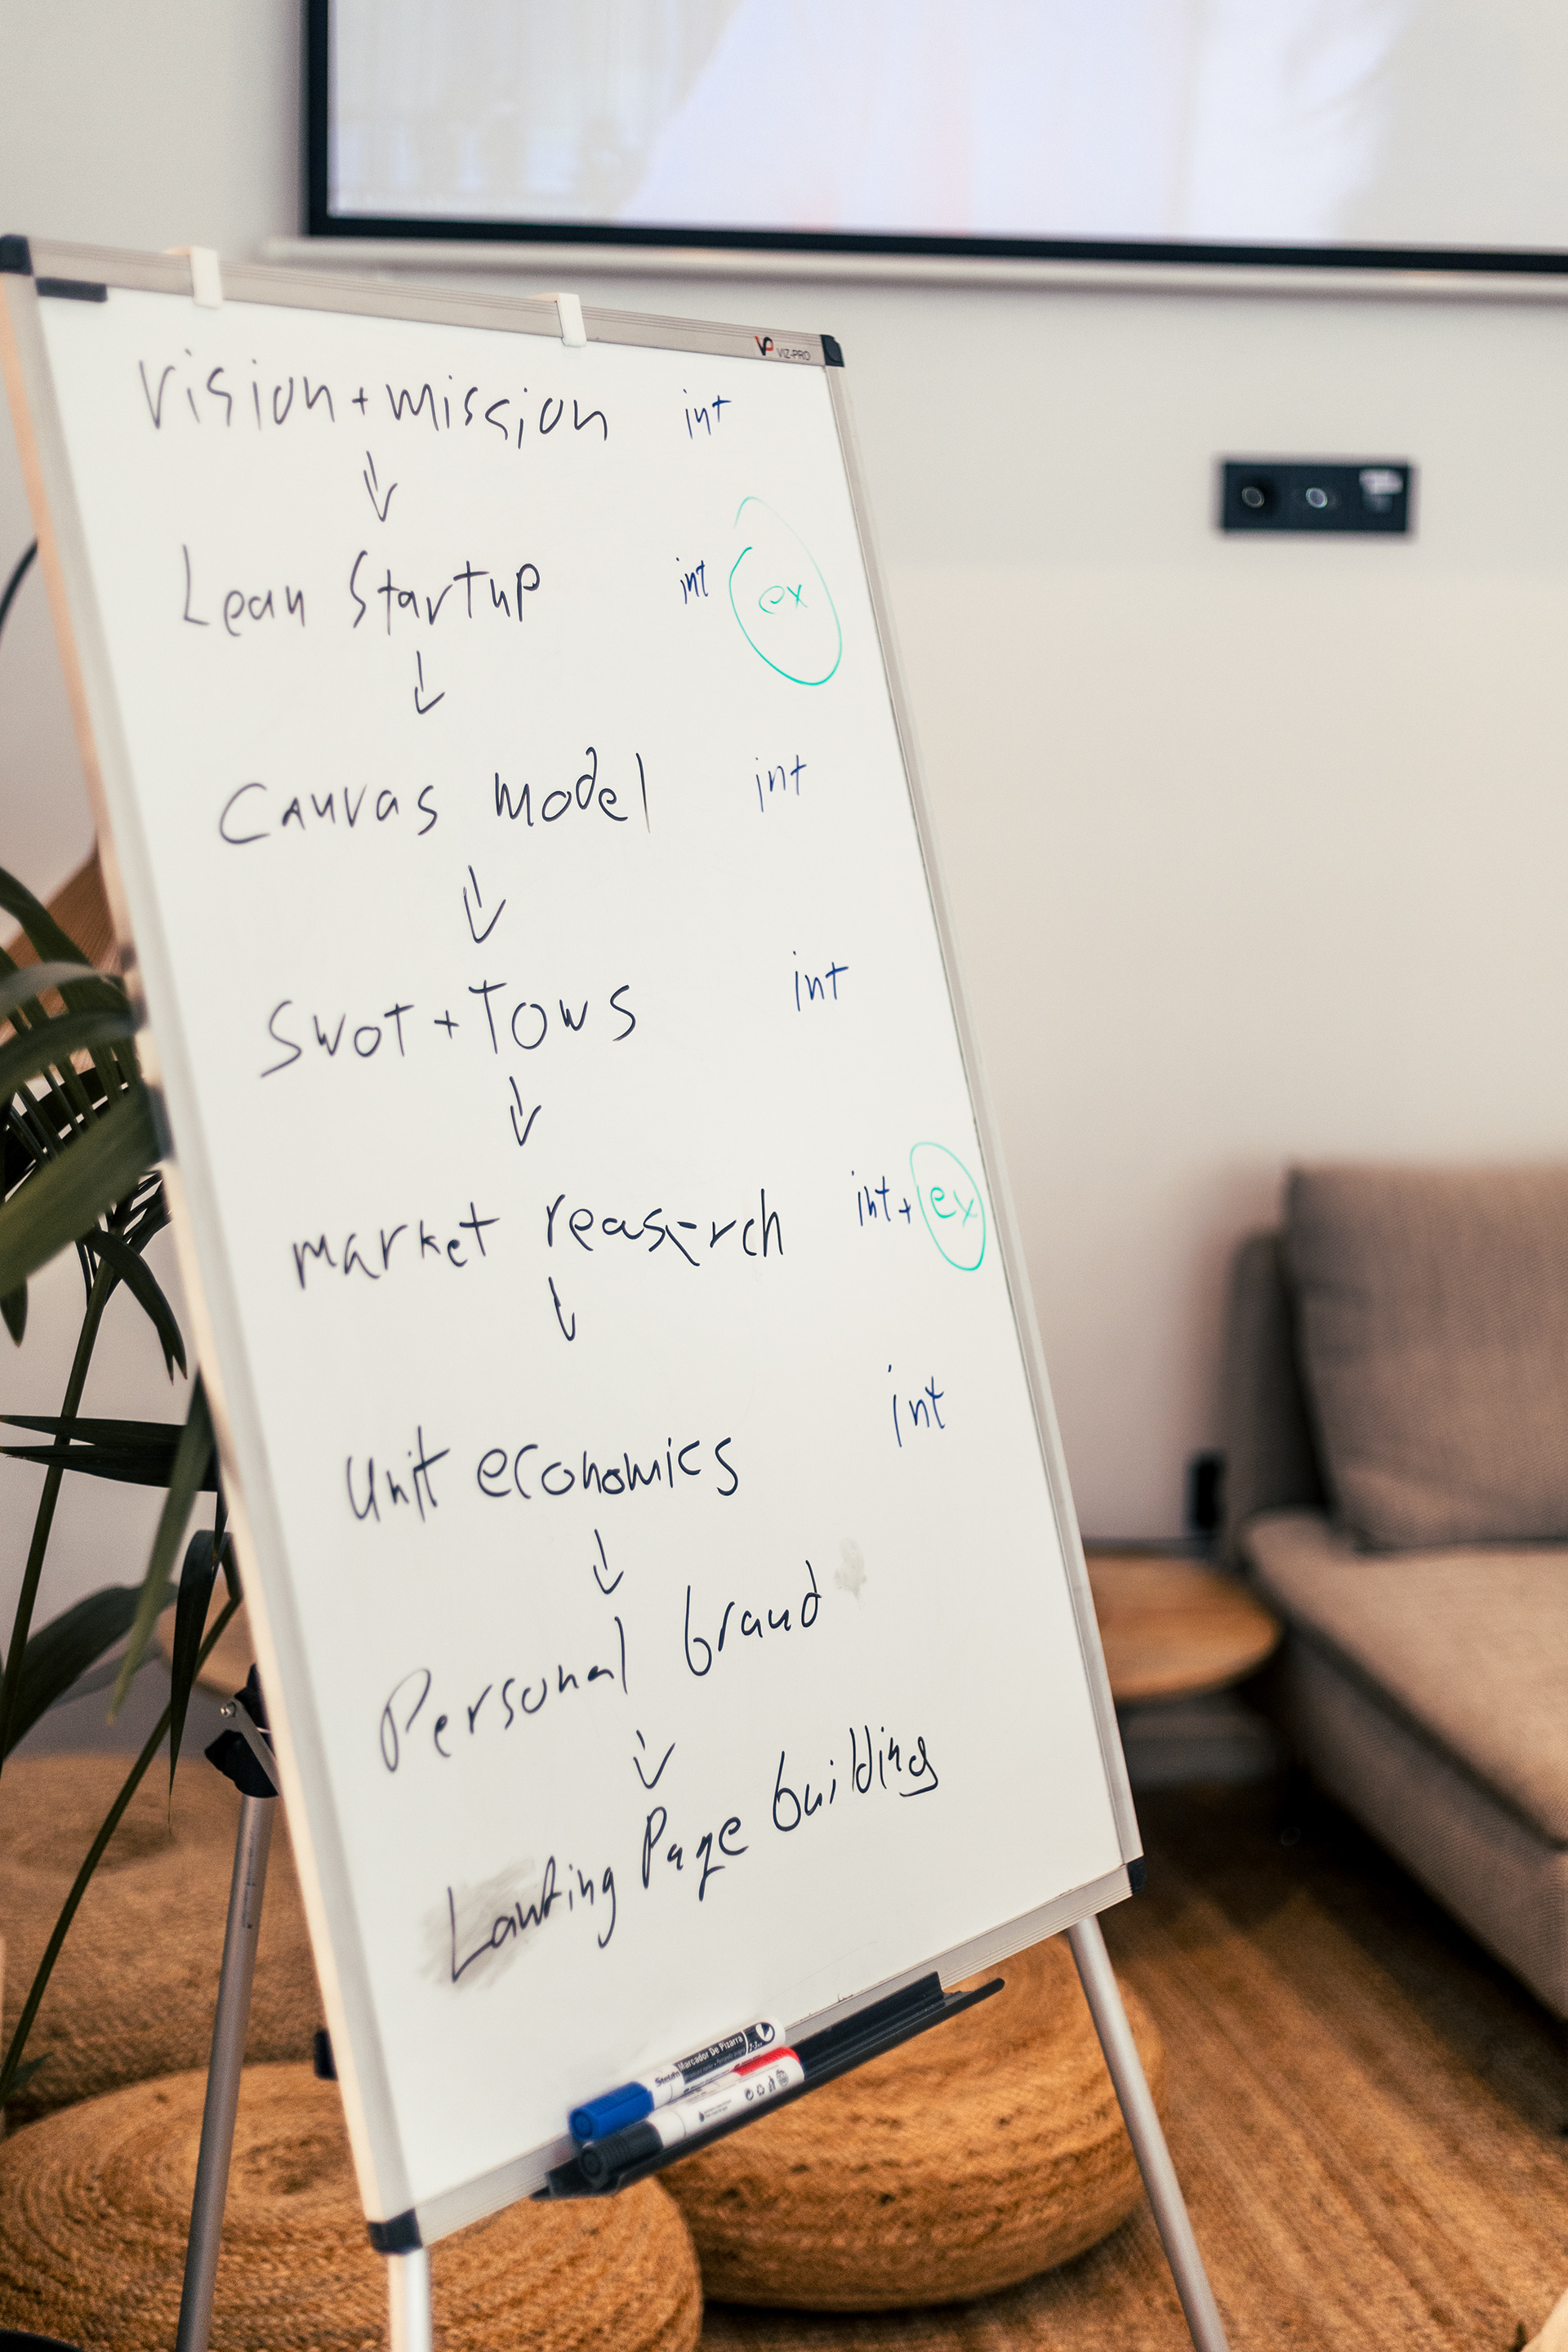 VP VIZ-PRO
Vision + mission int
Lean Startup int ex
Canvas model int
SWOT + TOWS int
market reaserch int + ex
Unit economics int
Personal brand
Landing Page building
Marcador De Pizarra